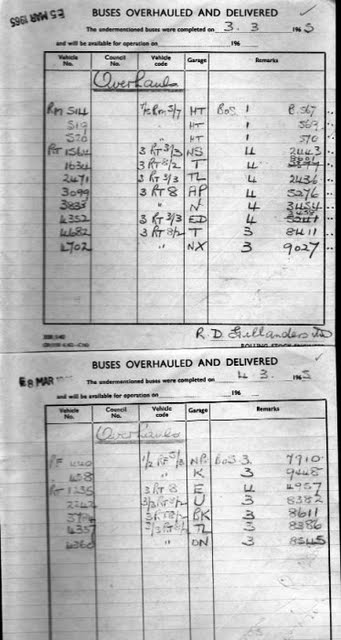 E5 MAR 1965
BUSES OVERHAULED AND DELIVERED
The undermentioned buses were completed on 3. 3. 1965
and will be available for operation on 196
Vehicle No. Council No. Vehicle code Garage Remarks
Overhauls
RM 514 HT BoS 1 B.567
HT 1 569
570 HT 1 570
RT 1564 3 RT 3/3 NS 4 2443
1634 3 RT 8/2 T 4
2471 3 RT 3/3 TL 4 2436
3099 3 RT 8 AP 4 5276
3835 " N 4 3454
4352 3 RT 3/3 ED 4
4682 3 RT 8/2 T 3 8411
4702 " NX 3 9027
R. D. Gillanders
ROLLING STOCK ENGINEER
E8 MAR
BUSES OVERHAULED AND DELIVERED
The undermentioned buses were completed on 4 3. 1965
and will be available for operation on 196
Vehicle No. Council No. Vehicle code Garage Remarks
Overhauls
RF 440 1/2 RF 5/3 NP BoS 3. 7910
458 " K 3 9448
RT 1235 3 RT 8 E 4 4957
U 3 8382
BK 3 8611
4357 TL 3 8386
4360 " ON 3 8545